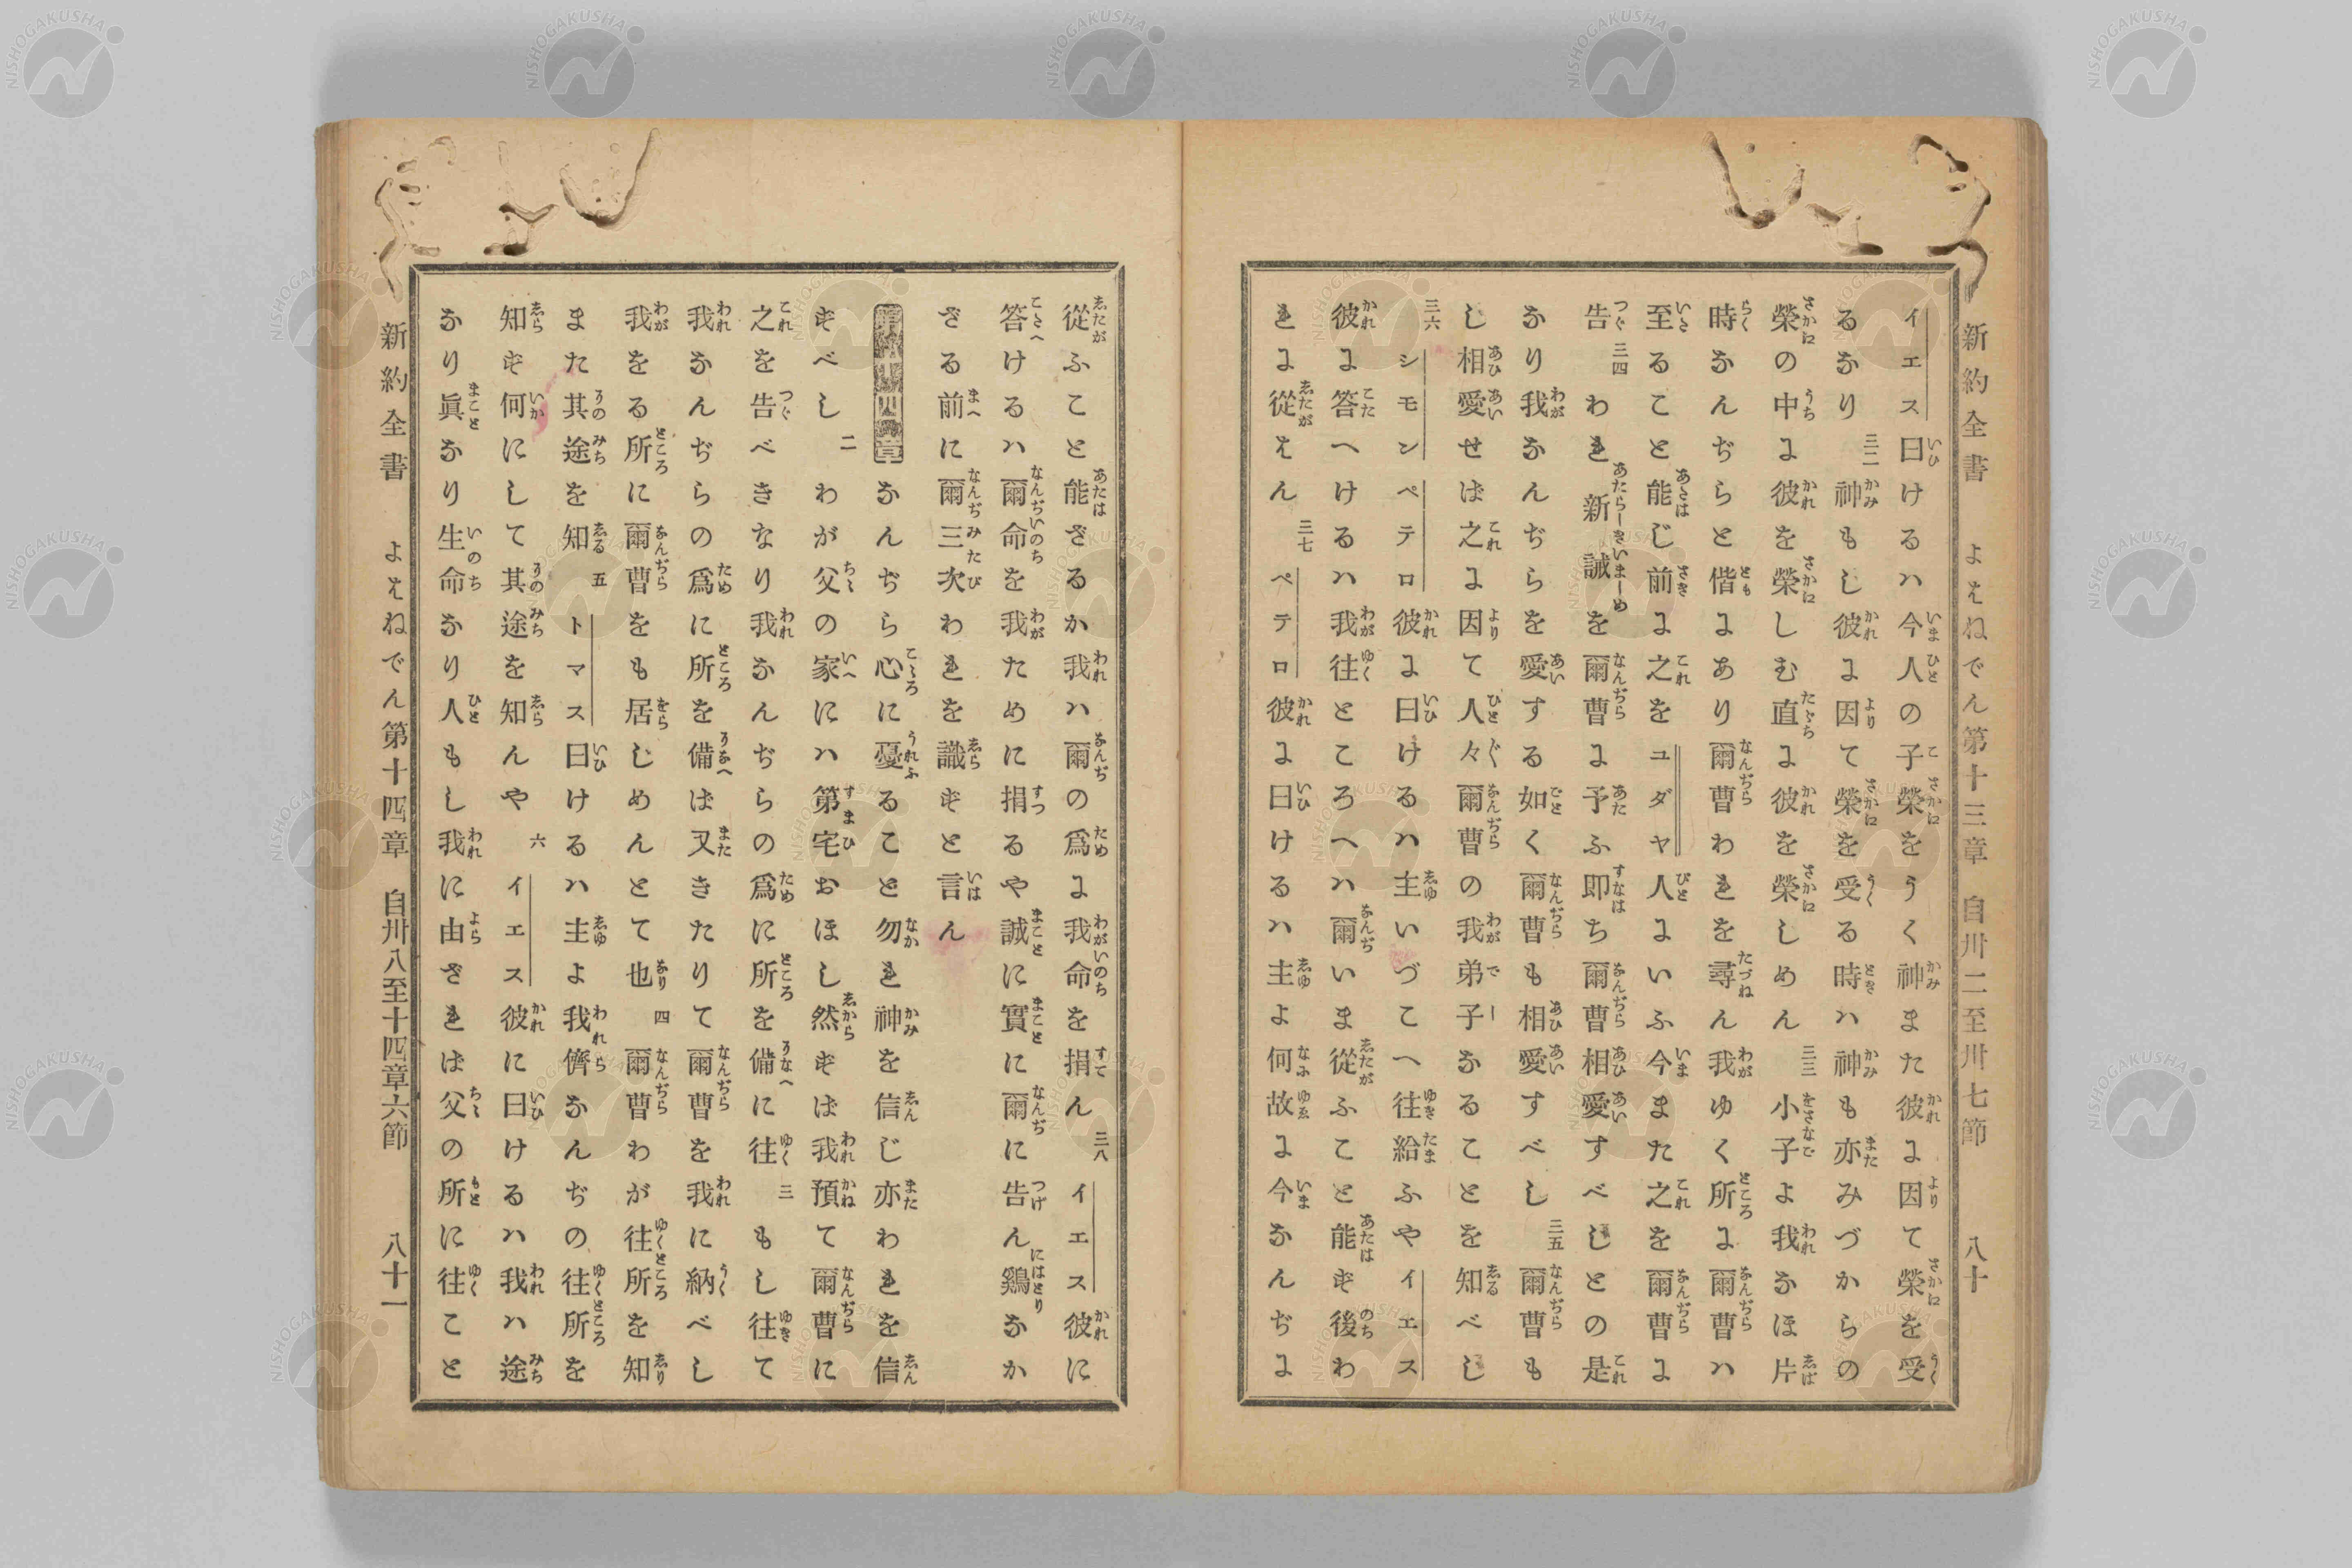 新約全書 よはねでん第十三章 自卅二至卅七節 八十
イエス曰けるハ今人の子榮をうく神また彼に因て榮を受
るなり三二神もし彼に因て榮を受る時ハ神も亦みづからの
榮の中に彼を榮しむ直に彼を榮しめん三三小子よ我なほ片
時なんぢらと偕にあり爾曹われを尋ん我ゆく所に爾曹ハ
至ること能じ前に之をユダヤ人にいふ今また之を爾曹に
告三四われ新誡を爾曹に予ふ即ち爾曹相愛すべしとの是
なり我なんぢらを愛する如く爾曹も相愛すべし三五爾曹も
し相愛せば之に因て人々爾曹の我弟子なることを知べし
三六シモンペテロ彼に曰けるハ主いづこへ往給ふやイエス
彼に答へけるハ我往ところへハ爾いま從ふこと能ず後わ
れに從はん三七ペテロ彼に曰けるハ主よ何故に今なんぢに
從ふこと能ざるか我ハ爾の爲に我命を捐ん三八イエス彼に
答けるハ爾命を我ために捐るや誠に實に爾に告ん鷄なか
ざる前に爾三次われを識ずと言ん
第十四章 なんぢら心に憂ること勿れ神を信じ亦われを信
ずべし二わが父の家にハ第宅おほし然ずば我預て爾曹に
之を告べきなり我なんぢらの爲に所を備に往三もし往て
我なんぢらの爲に所を備ば又きたりて爾曹を我に納べし
我をる所に爾曹をも居しめんとて也四爾曹わが往所を知
また其途を知五トマス曰けるハ主よ我儕なんぢの往所を
知ず何にして其途を知んや六イエス彼に曰けるハ我ハ途
なり眞なり生命なり人もし我に由ざれば父の所に往こと
新約全書 よはねでん第十四章 自卅八至十四章六節 八十一